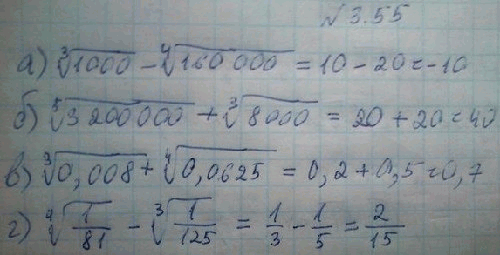 №3.55
а) ∛1000 − ∜160 000 = 10 − 20 = −10
б) ⁵√3 200 000 + ∛8000 = 20 + 20 = 40
в) ∛0,008 + ∜0,0625 = 0,2 + 0,5 = 0,7
г) ∜(1/81) − ∛(1/125) = 1/3 − 1/5 = 2/15